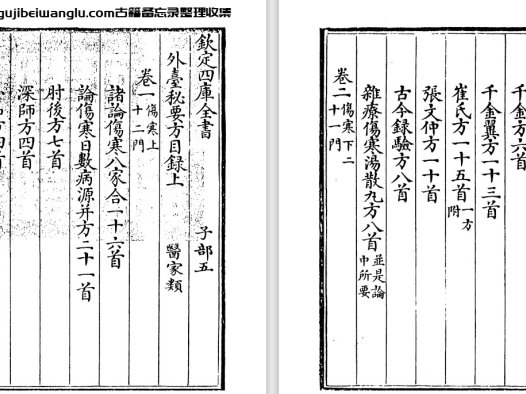 gujibeiwanglu.com古籍备忘录整理收集
欽定四庫全書 子部五
外臺秘要方目録上 醫家類
卷一 傷寒上 十二門
諸論傷寒八家合一十六首
論傷寒日數病源并方二十一首
肘後方七首
深師方四首
千金方六首
千金翼方一十三首
崔氏方一十五首 一方附
張文仲方一十首
古今録驗方八首
雜療傷寒湯散丸方八首 並是論中所要
卷二 傷寒下二十一門